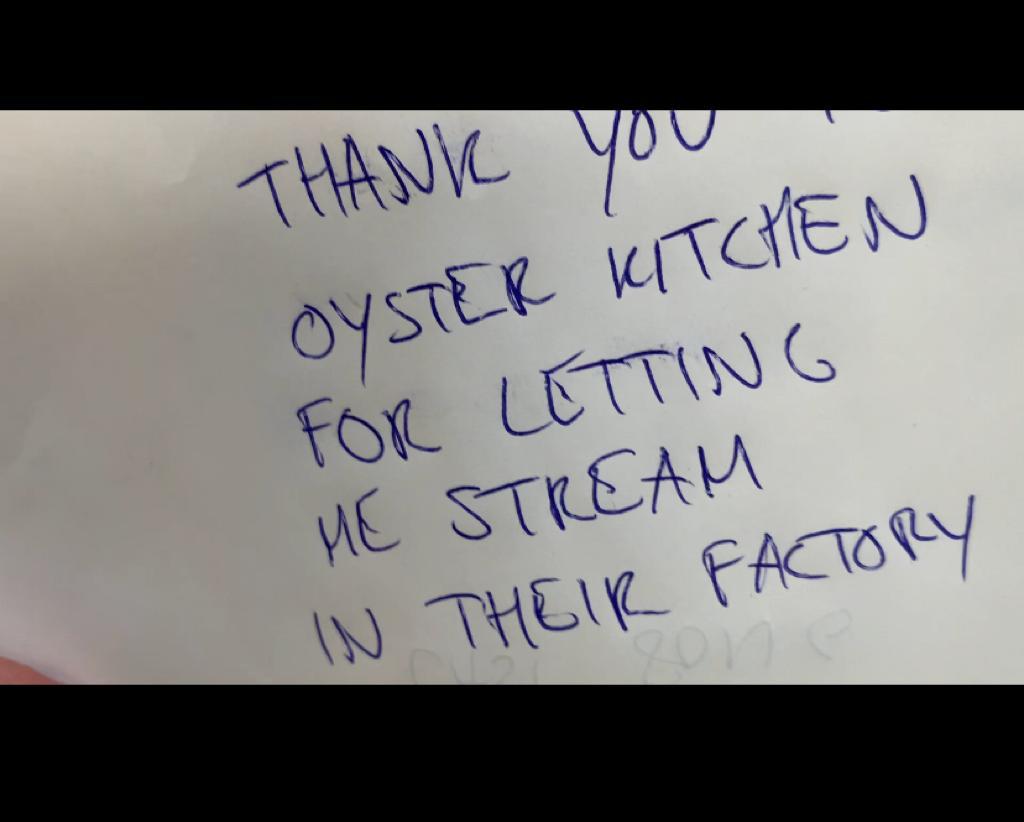 THANK YOU
OYSTER KITCHEN
FOR LETTING
ME STREAM
IN THEIR FACTORY